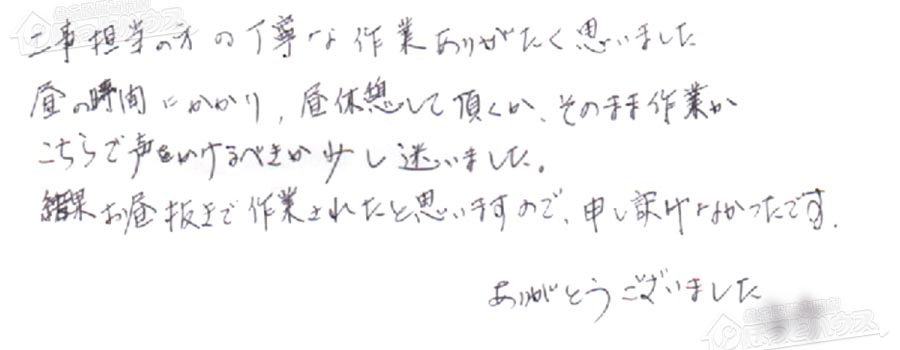 工事担当の方の丁寧な作業ありがたく思いました
昼の時間にかかり、昼休憩して頂くか、そのまま作業か
こちらで声をかけるべきか少し迷いました。
結果お昼抜きで作業されたと思いますので、申し訳けなかったです。
ありがとうございました